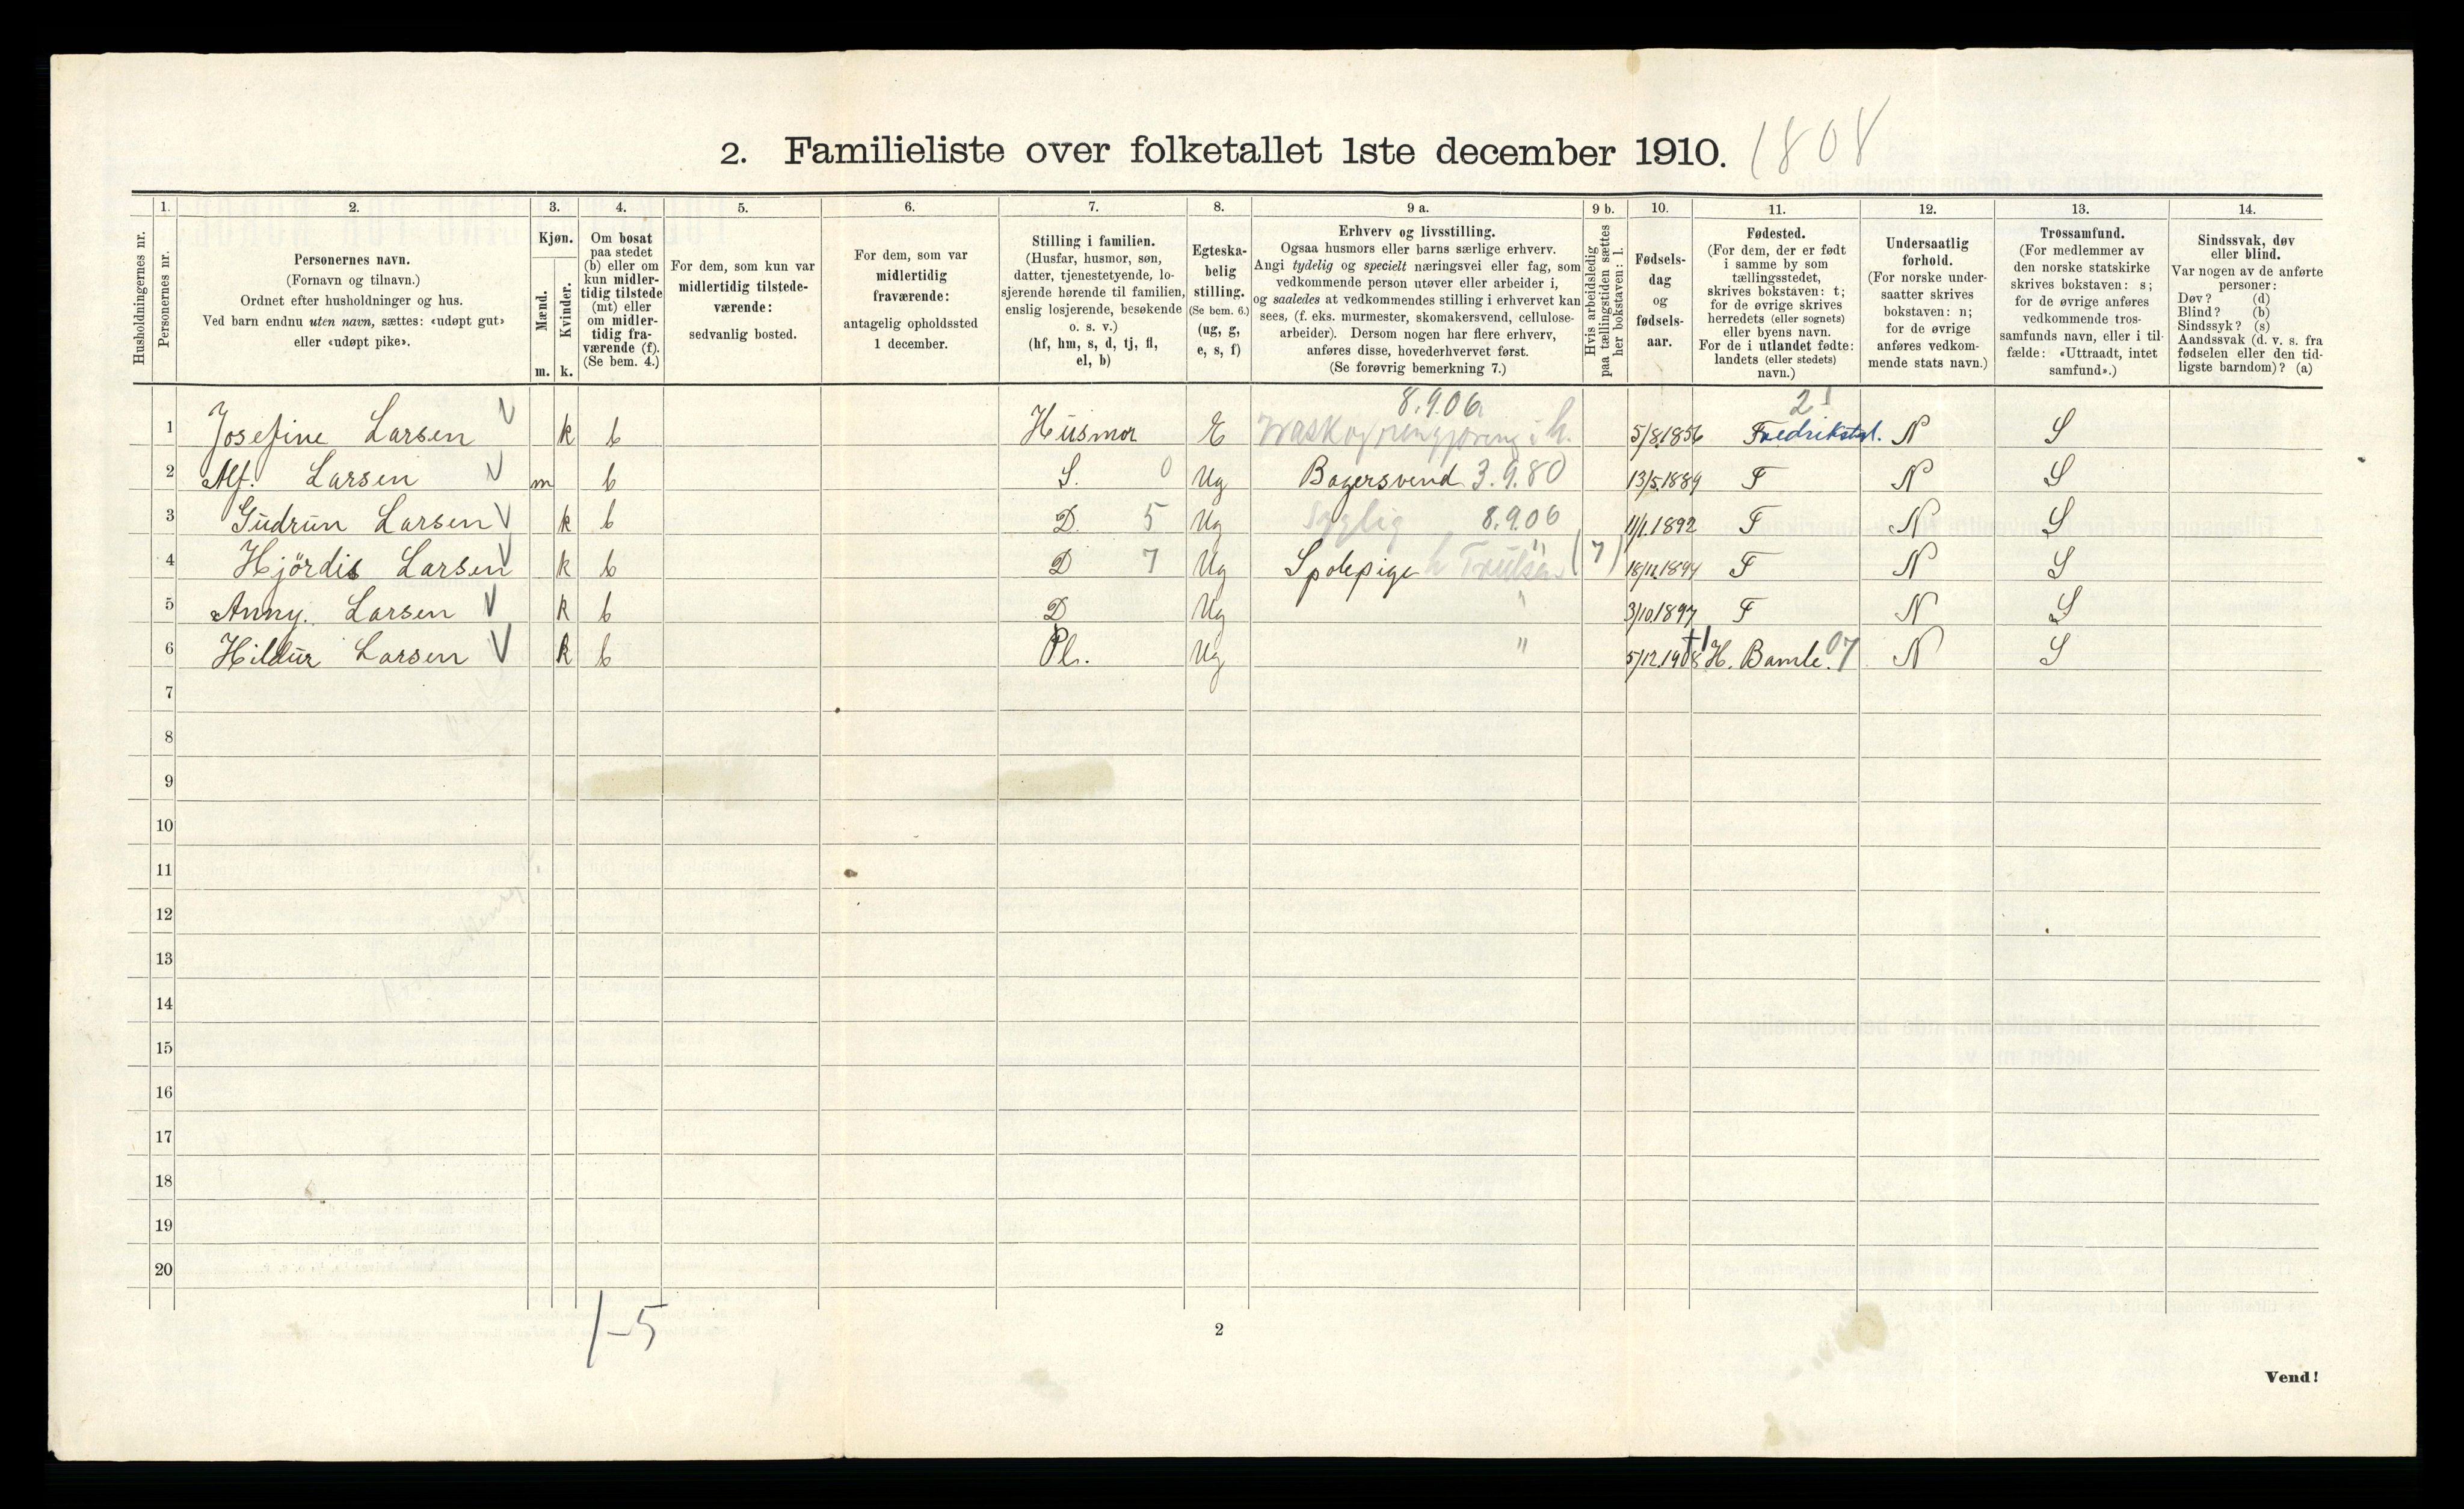 2. Familieliste over folketallet 1ste december 1910. 1808
Husholdningernes nr.
1.
Personernes nr.
2.
Personernes navn.
(Fornavn og tilnavn.)
Ordnet efter husholdninger og hus.
Ved barn endnu uten navn, sættes: «udøpt gut»
eller «udøpt pike».
3.
Kjøn.
Mænd.
Kvinder.
m. k.
4.
Om bosat
paa stedet
(b) eller om
kun midler-
tidig tilstede
(mt) eller
om midler-
tidig fra-
værende (f).
(Se bem. 4.)
5.
For dem, som kun var
midlertidig tilstede-
værende:
sedvanlig bosted.
6.
For dem, som var
midlertidig
fraværende:
antagelig opholdssted
1 december.
7.
Stilling i familien.
(Husfar, husmor, søn,
datter, tjenestetyende, lo-
sjerende hørende til familien,
enslig losjerende, besøkende
o. s. v.)
(hf, hm, s, d, tj, fl,
el, b)
8.
Egteska-
belig
stilling.
(Se bem. 6.)
(ug, g,
e, s, f)
9 a.
Erhverv og livsstilling.
Ogsaa husmors eller barns særlige erhverv.
Angi tydelig og specielt næringsvei eller fag, som
vedkommende person utøver eller arbeider i,
og saaledes at vedkommendes stilling i erhvervet kan
sees, (f. eks. murmester, skomakersvend, cellulose-
arbeider). Dersom nogen har flere erhverv,
anføres disse, hovederhvervet først.
(Se forøvrig bemerkning 7.)
9 b.
Hvis arbeidsledig
paa tællingstiden sættes
her bokstaven: l.
10.
Fødsels-
dag
og
fødsels-
aar.
11.
Fødested.
(For dem, der er født
i samme by som
tællingsstedet,
skrives bokstaven: t;
for de øvrige skrives
herredets (eller sognets)
eller byens navn.
For de i utlandet fødte:
landets (eller stedets)
navn.)
12.
Undersaatlig
forhold.
(For norske under-
saatter skrives
bokstaven: n;
for de øvrige
anføres vedkom-
mende stats navn.)
13.
Trossamfund.
(For medlemmer av
den norske statskirke
skrives bokstaven: s;
for de øvrige anføres
vedkommende tros-
samfunds navn, eller i til-
fælde: «Uttraadt, intet
samfund».)
14.
Sindssvak, døv
eller blind.
Var nogen av de anførte
personer:
Døv? (d)
Blind? (b)
Sindssyk? (s)
Aandssvak (d. v. s. fra
fødselen eller den tid-
ligste barndom)? (a)
8.9.06 2
1 Josefine Larsen V k b Husmor E Vask og rengjøring i h. 5/8.1856 Fredrikstad. N S
2 Alf. Larsen V m b S. 0 Ug Bagersvend 3.9.80 13/5.1889 F N S
3 Gudrun Larsen V k b D. 5 Ug Syglig 8.9.06 11/1.1892 F N S
4 Hjördis Larsen V k b D 7 Ug Spolepige " (7) F N S
5 Anny. Larsen V k b D Ug " 3/10.1897 F N S
6 Hildur Larsen V k b Pl. Ug " 5/12.1908 H. Bamle. 07 N S
7
8
9
10
11
12
13
14
15
16
17
18
19
20
1-5
2
Vend!